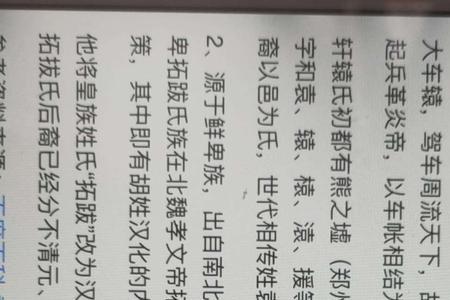 大车辕，驾车周流天下，故
起兵革炎帝，以车帐相结为
轩辕氏初都有熊之墟（郑州
字和袁、辕、榬、溒、援等
裔以邑为氏，世代相传姓袁
2、源于鲜卑族，出自南北
卑拓跋氏族在北魏孝文帝拓
策，其中即有胡姓汉化的内
他将皇族姓氏“拓跋”改为汉
拓拔氏后裔已经分不清元、
参考资料来源：